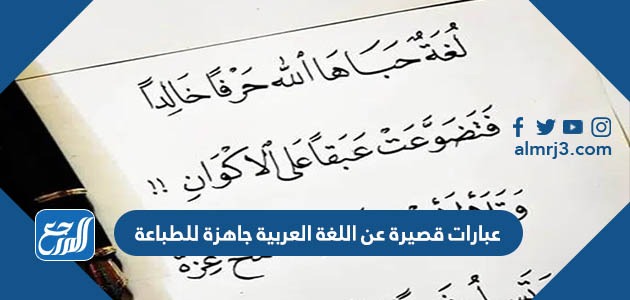 لُغَةٌ حَبَاهَا ٱللهُ حَرْفًا خَالِدًا
فَتَضَوَّعَتْ عَبَقًا عَلَى ٱلْاكْوَانِ !!
almrj3.com
عبارات قصيرة عن اللغة العربية جاهزة للطباعة
المرجع